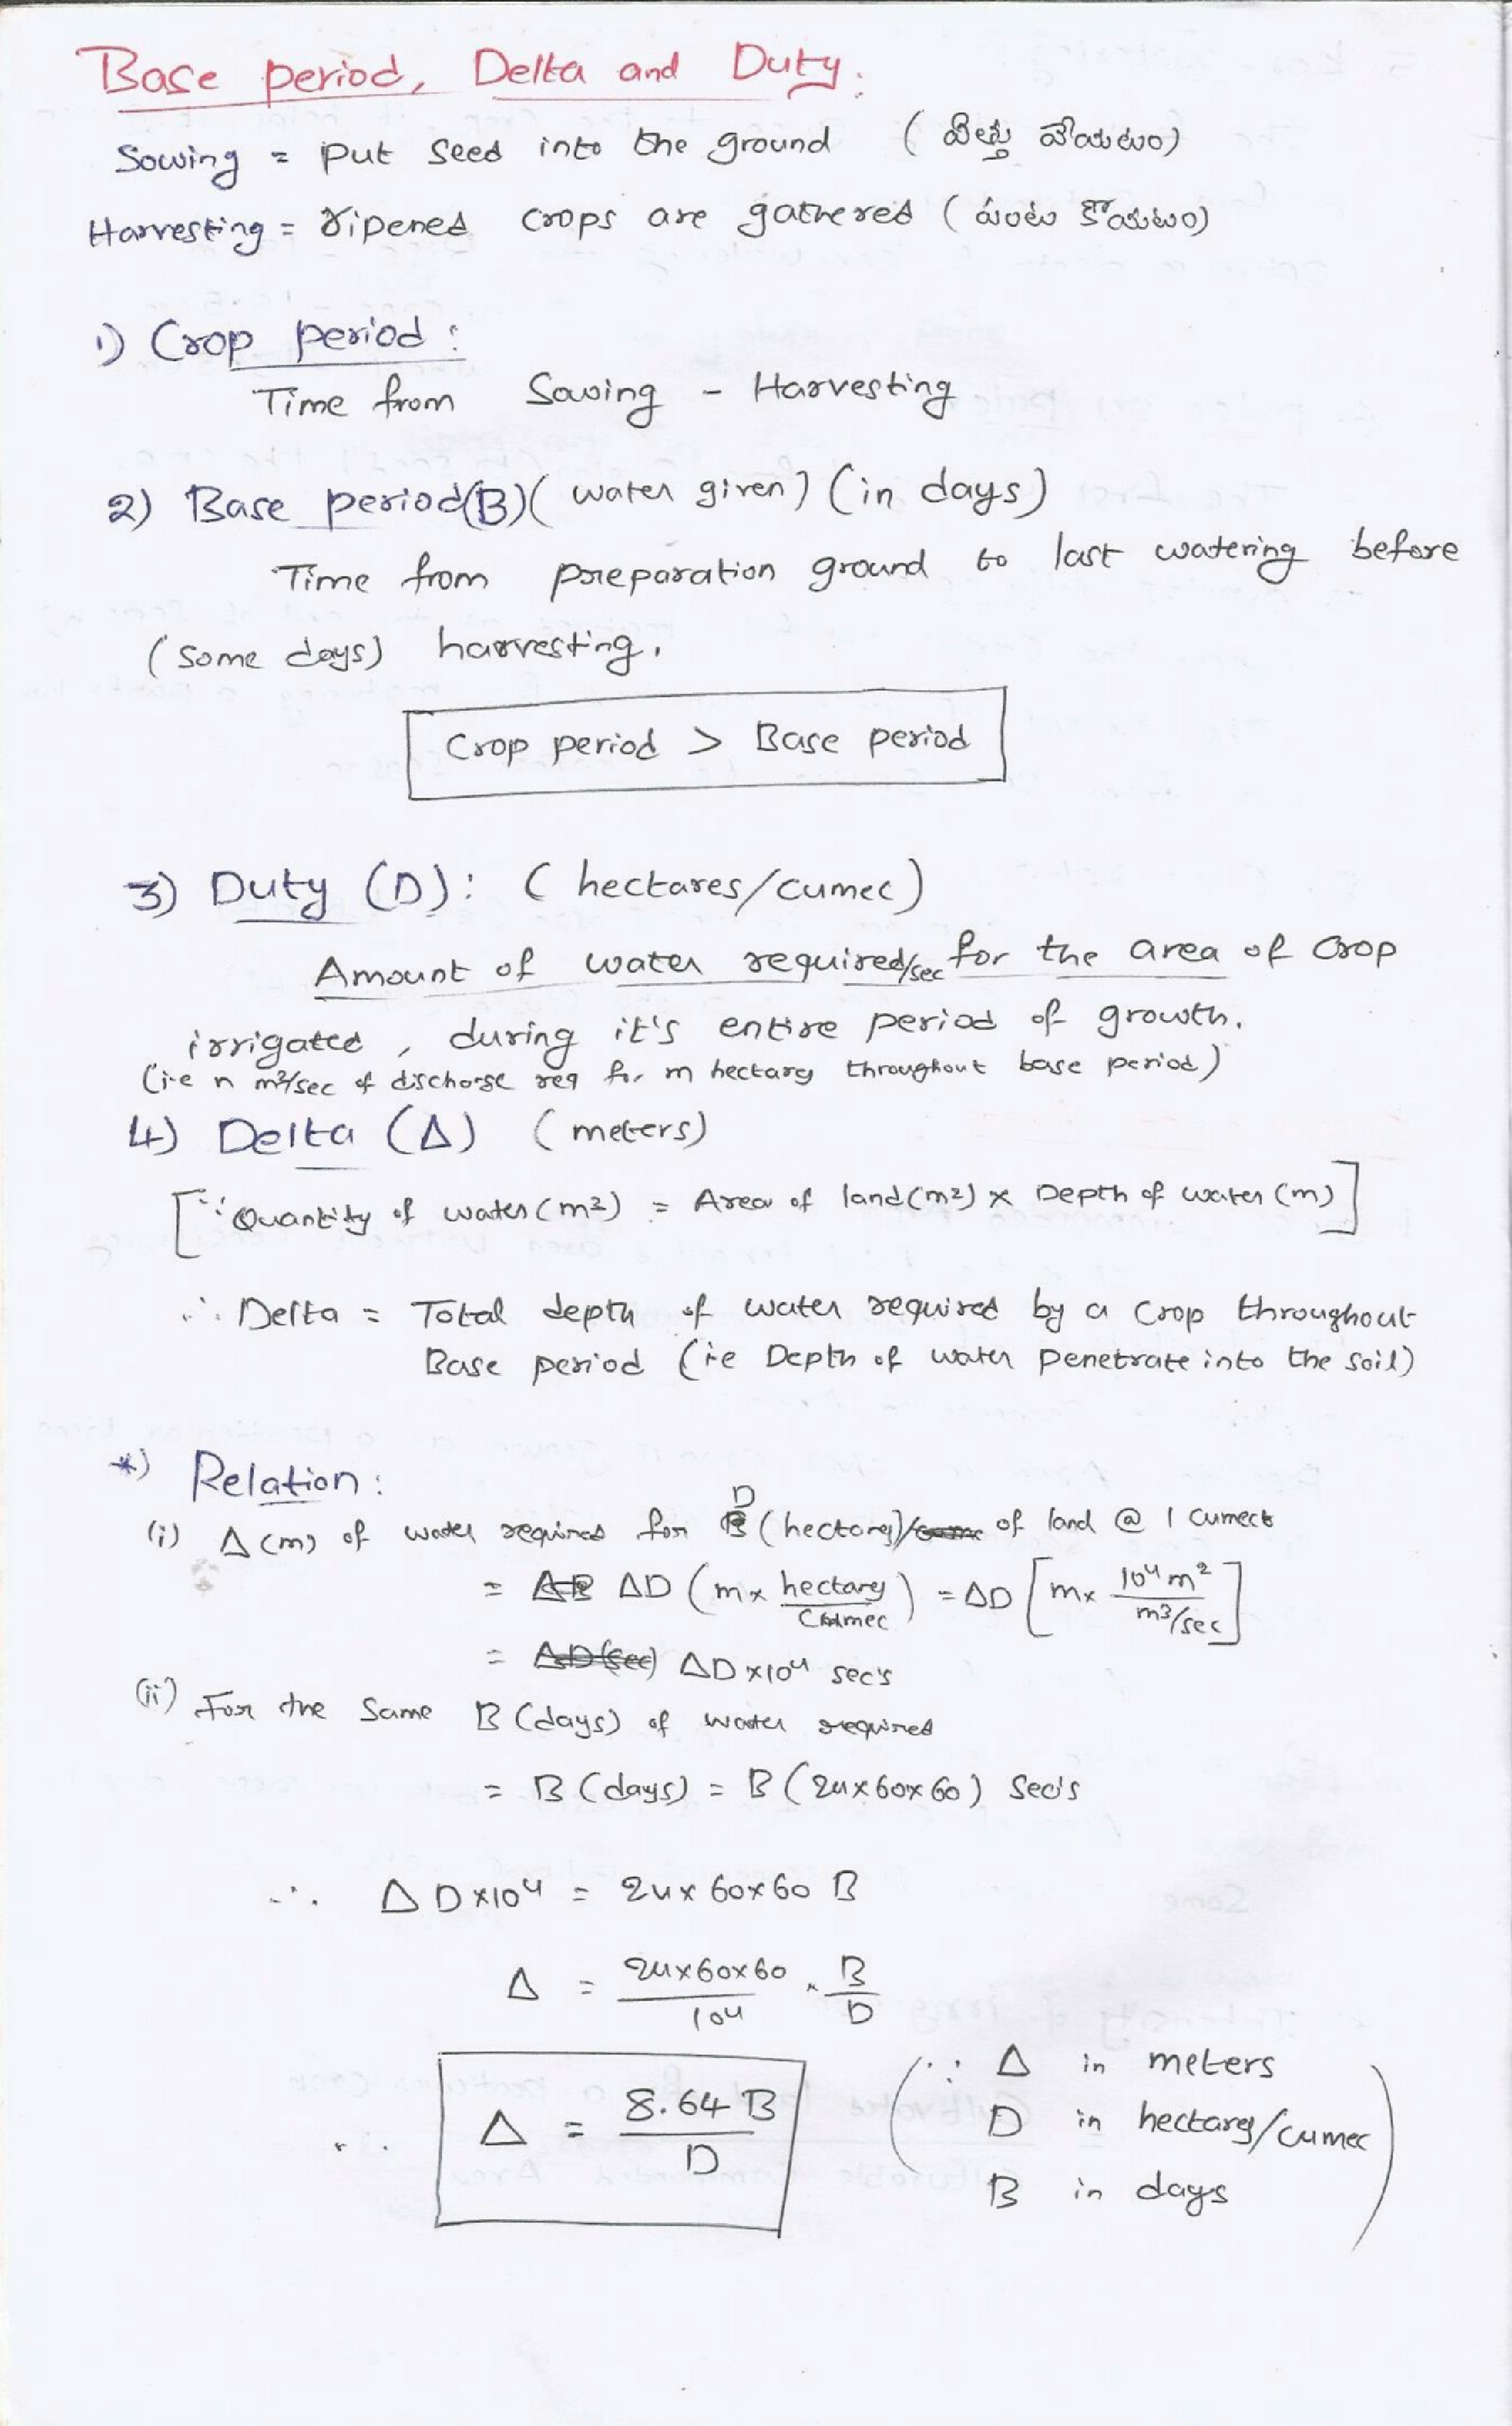 Base period, Delta and Duty.
Sowing = put seed into the ground (విత్తు వేయటం)
Harvesting = ripened crops are gathered (పంట కోయటం)
1) Crop period:
Time from Sowing - Harvesting
2) Base period(B)(water given) (in days)
Time from preparation ground to last watering before
(some days) harvesting.
Crop period > Base period
3) Duty (D): (hectares/cumec)
Amount of water required/sec for the area of crop
irrigated, during it's entire period of growth.
(i.e n m³/sec of discharge req for m hectares throughout base period)
4) Delta (Δ) (meters)
[∵ Quantity of water (m2) = Area of land (m2) x Depth of water (m)]
∴ Delta = Total depth of water required by a crop throughout
Base period (ie Depth of water penetrate into the soil)
*) Relation:
(i) Δ(m) of water required for D (hectares)/ of land @ 1 cumecs
= ΔD (m x hectares/cumec) = ΔD [m x 10⁴m²/m3/sec]
= ΔD x10⁴ sec's
(ii) For the same B (days) of water required
= B (days) = B (24x60x60) sec's
∴ ΔD x10⁴ = 24x60x60 B
Δ = 24x60x60/10⁴ x B/D
∴ Δ = 8.64 B/D
(∵ Δ in meters
D in hectares/cumec
B in days)